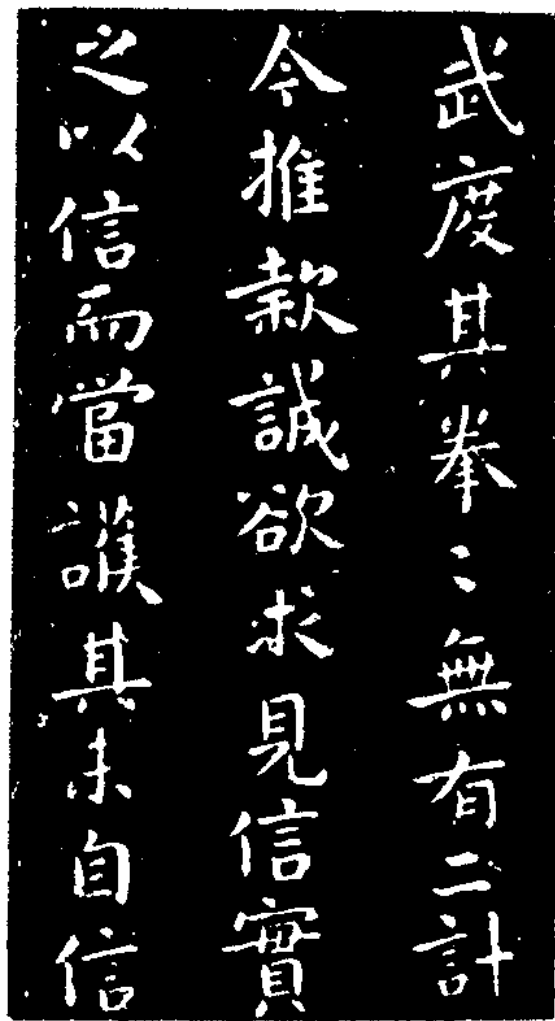 武度其拳〻無有二計
今推款誠欲求見信實
之以信而當護其未自信